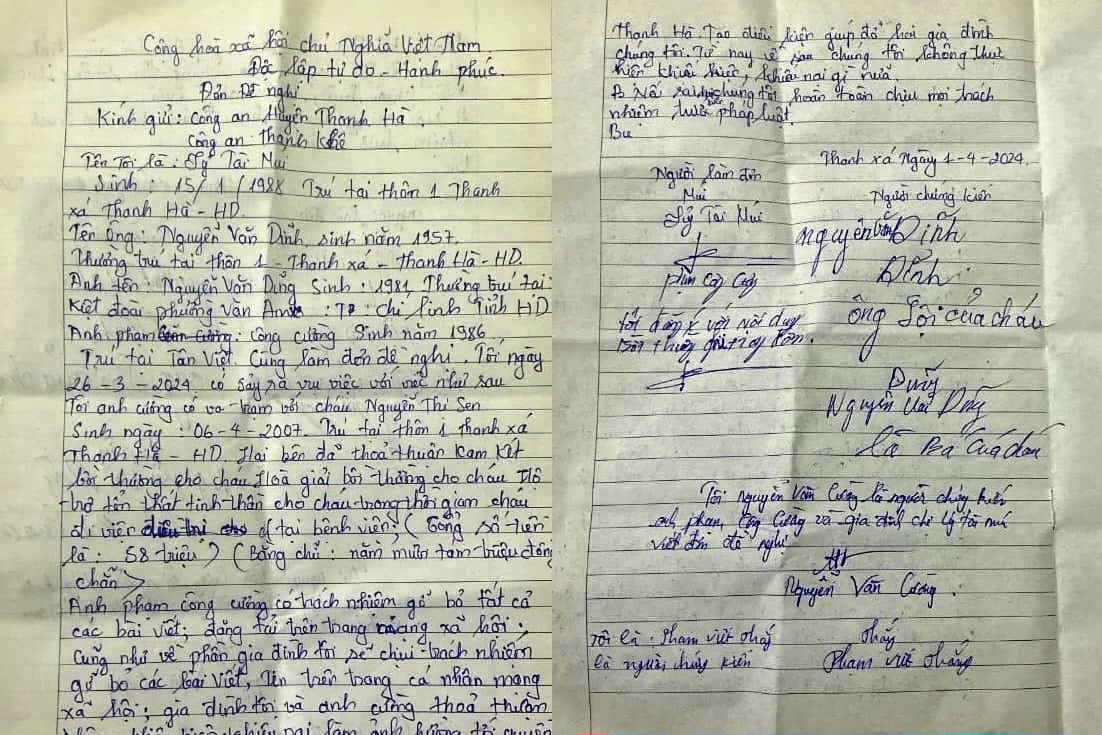 Cộng hoà xã hội chủ Nghĩa Việt Nam
Độc lập tự do - Hạnh phúc.
Đơn Đề nghị
Kính gửi: Công an Huyện Thanh Hà.
Công an Thanh Khê
Tên Tôi là: Lý Tài Múi
Sinh: 15/1/1988 Trú tại thôn 1 Thanh
xá Thanh Hà - HD.
Tên ông: Nguyễn Văn Dĩnh, sinh năm 1957.
Thường trú tại thôn 1 - Thanh xá - Thanh Hà - HD.
Anh tên: Nguyễn Văn Dũng Sinh: 1981, Thường trú tại:
Kiệt đoài phường Văn An : TP chí linh Tỉnh HD
Anh phạm : Công cường Sinh năm 1986
Trú tại Tân Việt. Cùng làm đơn đề nghị. Tối ngày
26-3-2024 có sảy ra vụ việc với việc như sau
Tôi anh cường có va trạm với cháu Nguyễn Thị Sen
Sinh ngày: 06-4-2007. Trú tại thôn 1 thanh xá
Thanh Hà - HD. Hai bên đã thoả thuận kam kết
bồi thường cho cháu Hoà giải bồi thường cho cháu
trợ tổn thất tinh thần cho cháu trong thời gian cháu
đi viện ở tại bệnh viện; (Tổng số tiền
là: 58 triệu) (Bằng chữ: năm mươi tam triệu đồng
chẵn)
Anh phạm công cường có trách nhiệm gỡ bỏ tất cả
các bài viết; đăng tải trên trang mạng xã hội.
Cũng như về phần gia đình tôi sẽ chịu trách nhiệm
gỡ bỏ các bài viết, trên trang cá nhân mạng
xã hội; gia đình tôi và anh cường thoả thuận
Thanh Hà Tạo điều kiện giúp đỡ hai gia đình
chúng tôi. Từ nay về sau chúng tôi không thực
hiện khiếu kiện, khiếu nại gì nữa.
Nếu sai chúng tôi hoàn toàn chịu mọi trách
nhiệm trước pháp luật.
Thanh xá Ngày 1-4-2024.
Người làm đơn
Múi
Lý Tài Múi
Người chứng kiến
Nguyễn Văn Dĩnh
Dĩnh
ông Nội của cháu
phạm Công Cường
tôi đồng ý với nội dung
bồi thường ghi trong đơn.
Nguyễn Văn Dũng
là Bố của cháu
Tôi nguyễn Văn Cường là người chứng kiến
anh phạm Công Cường và gia đình chị lý tài múi
viết đơn đề nghị
Nguyễn Văn Cường.
Tôi là: Phạm viết
là người chứng kiến
Phạm viết